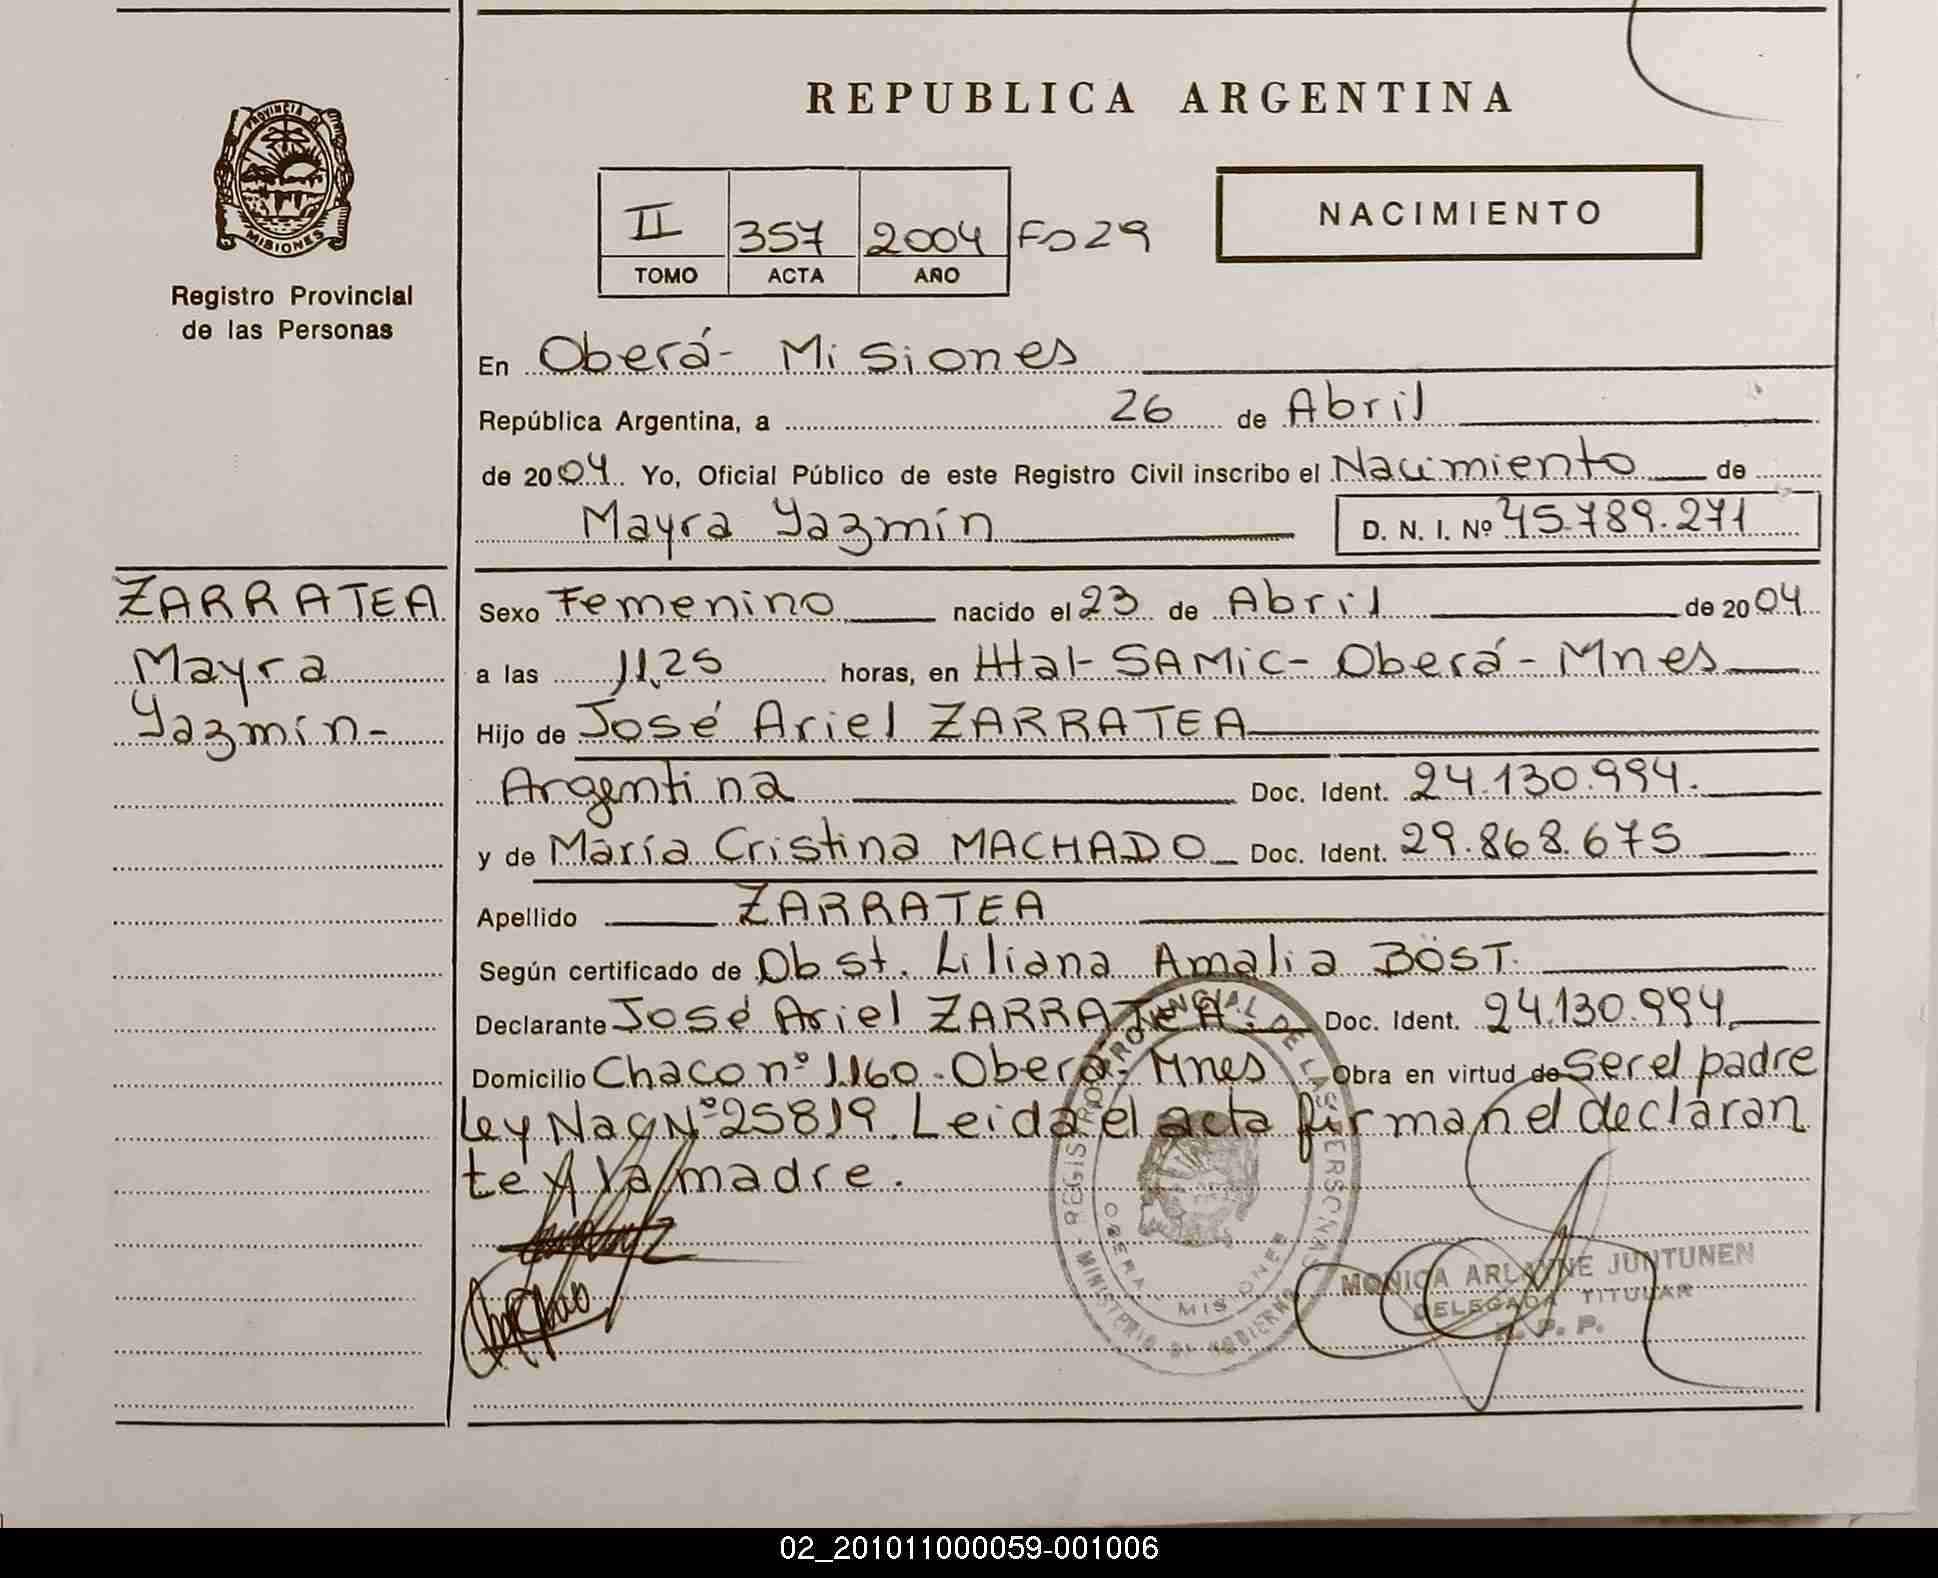 REPUBLICA ARGENTINA
PROVINCIA DE
MISIONES
Registro Provincial
de las Personas
II 357 2004 Fo 29
TOMO ACTA AÑO
NACIMIENTO
En Oberá- Misiones
República Argentina, a 26 de Abril
de 2004. Yo, Oficial Público de este Registro Civil inscribo el Nacimiento de
Mayra Yazmín D. N. I. Nº 45.789.271
ZARRATEA
Mayra
Yazmín-
Sexo Femenino nacido el 23 de Abril de 2004
a las 11,25 horas, en Htal- SAMIC- Oberá- Mnes
Hijo de José Ariel ZARRATEA
Argentina Doc. Ident. 24.130.994.
y de María Cristina MACHADO Doc. Ident. 29.868.675
Apellido ZARRATEA
Según certificado de Obst. Liliana Amalia BÖST.
Declarante José Ariel ZARRATEA. Doc. Ident. 24.130.994
Domicilio Chaco nº 1.160. Oberá- Mnes Obra en virtud de ser el padre
Ley Nac Nº 25819. Leida el acta firman el declaran
te y la madre.
REGISTRO PROVINCIAL DE LAS PERSONAS
MINISTERIO DE GOBIERNO
OBERA MISIONES
MONICA ARLAYNE JUNTUNEN
DELEGADA TITULAR
R. P. P.
02_201011000059-001006